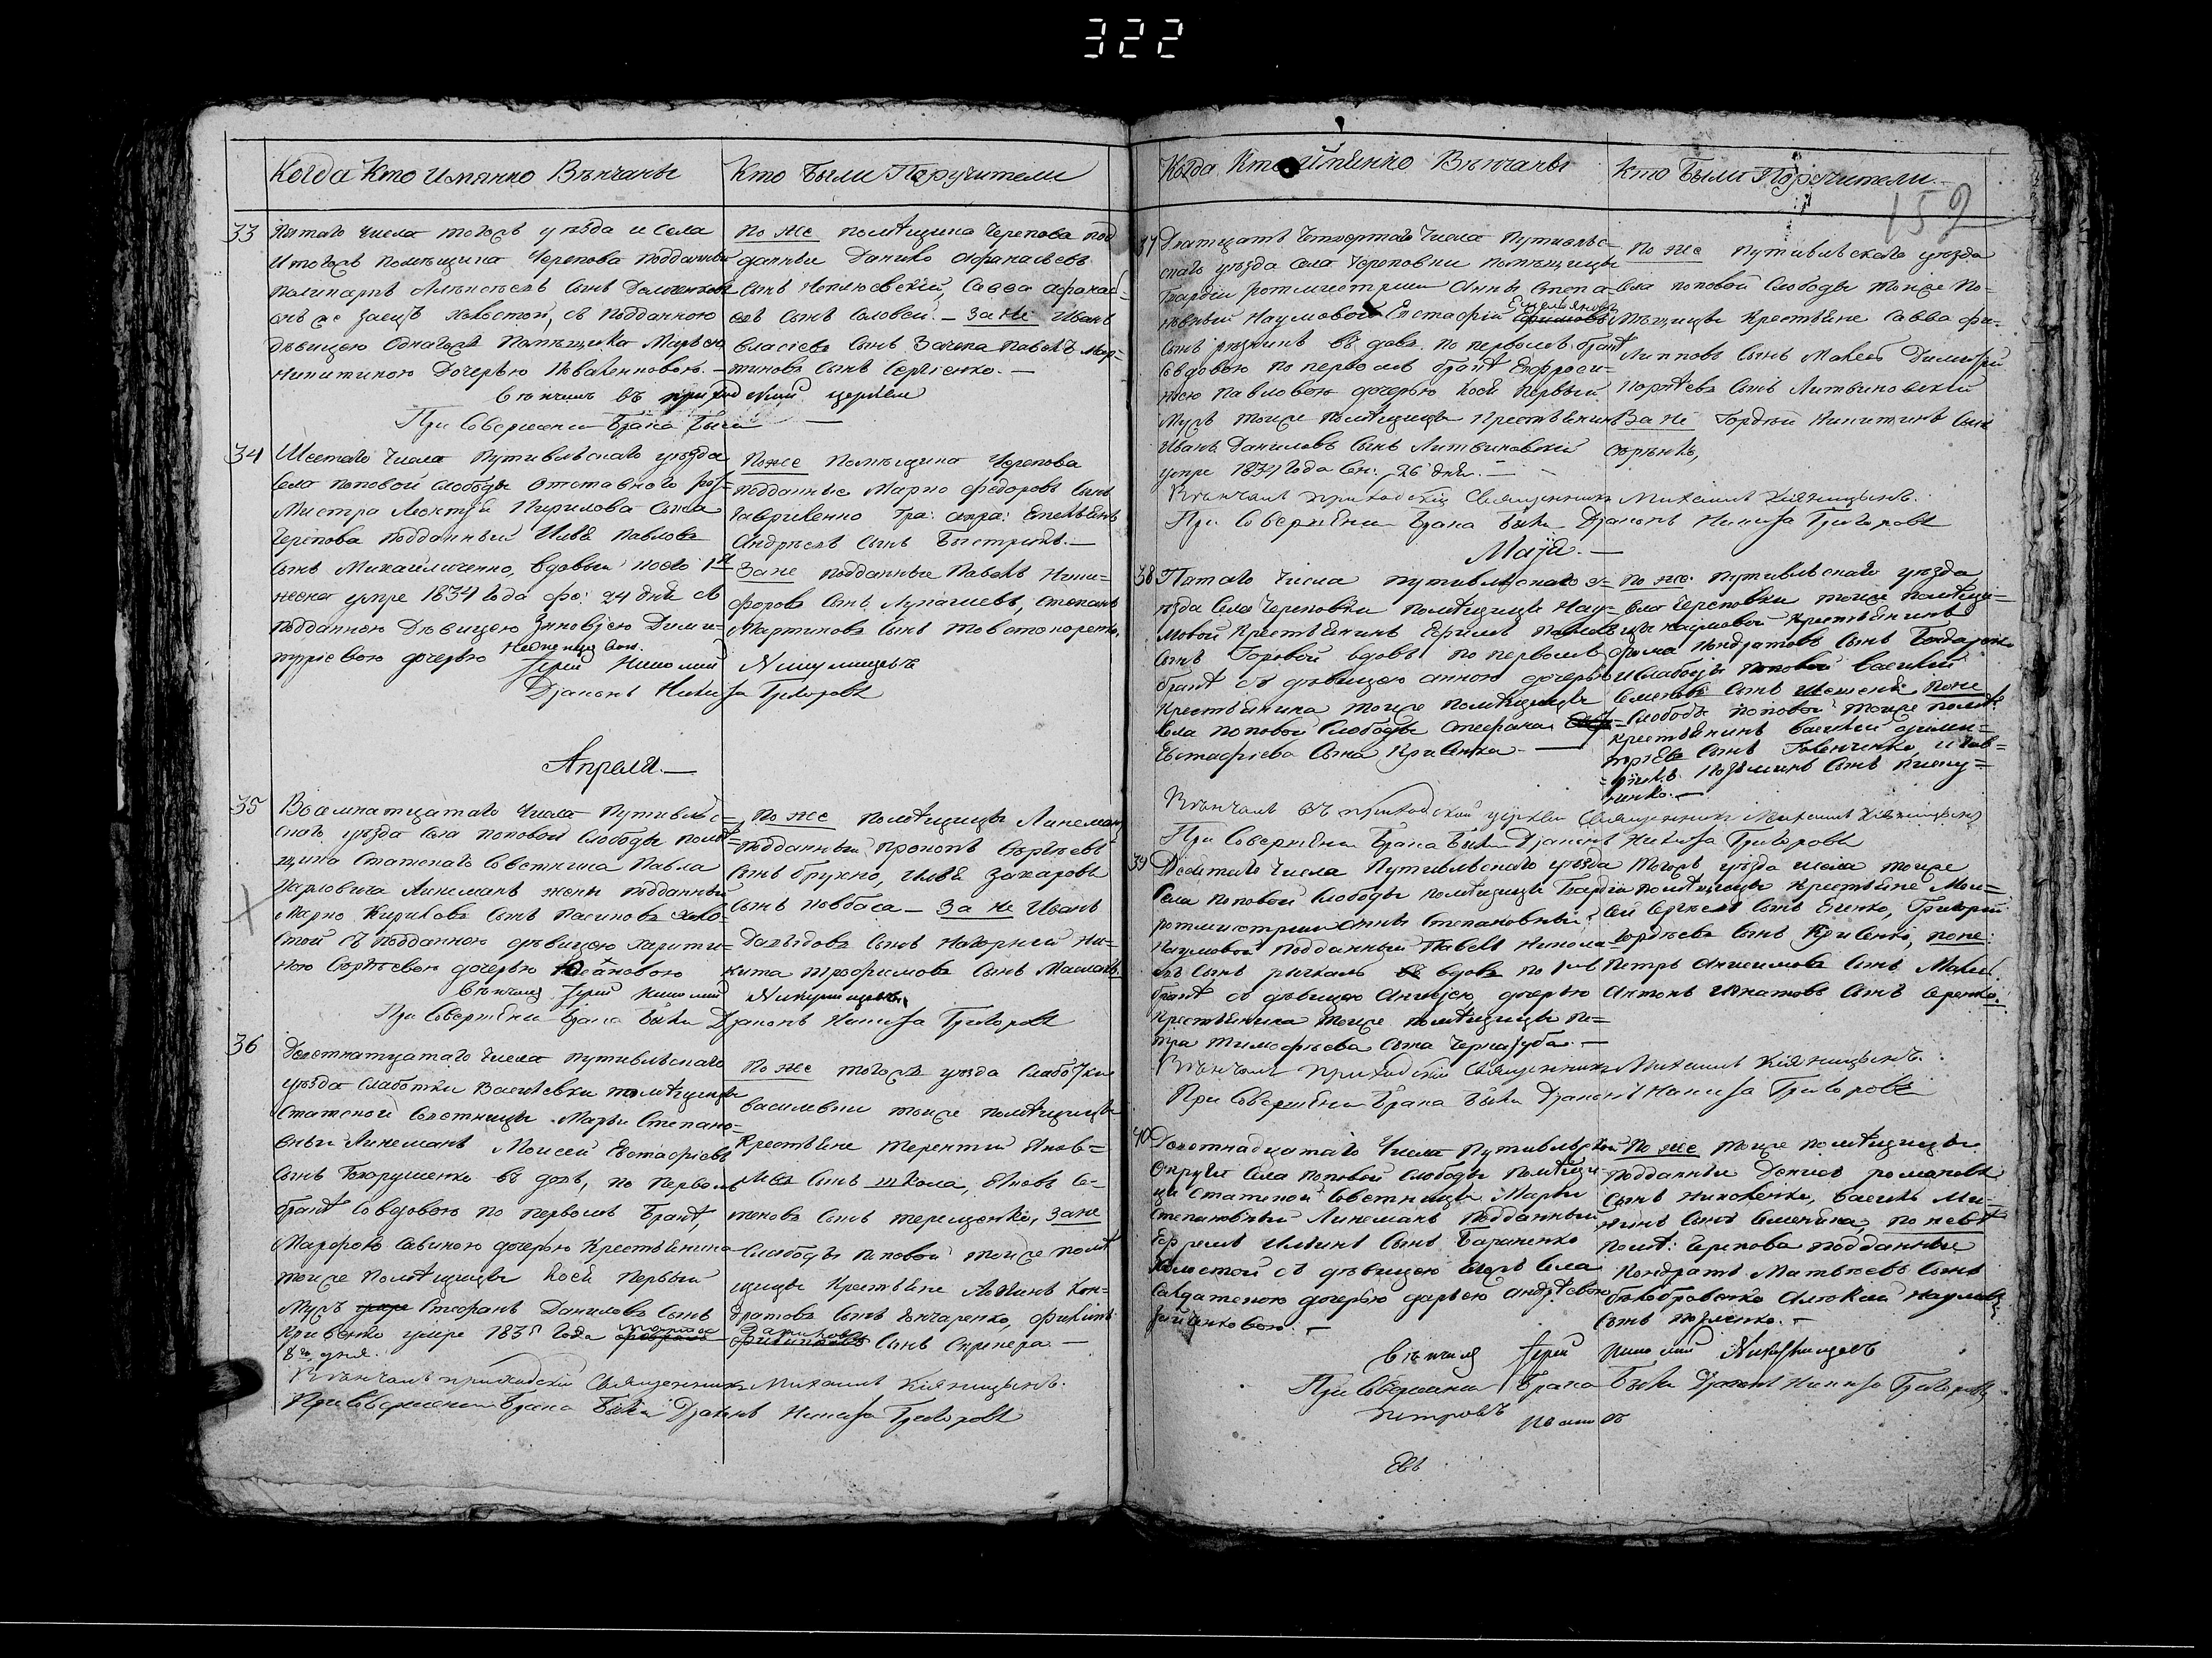 322
Когда Кто Имянно Вѣнчаны
Кто Были Поручители
33 Пятаго числа тогожъ уѣзда и села
Итогожъ помѣщика Черепова подданный
Поликарпъ Алексѣевъ сынъ
онъ же Заецъ холостой, съ подданною
дѣвицею Одногожъ Помѣщика Марѣею
Никитиною Дочерью Иваненковою. —
По же помѣщика Черепова под
данные Данило Афанасьевъ
сынъ Неплюевскій, Савва Афанас=
евъ сынъ Соловей. — За не Иванъ
Власіевъ сынъ Зачепа Павелъ Мар=
тиновъ сынъ Сергіенко. —
Вѣнчалъ въ приходской церкви
При Совершеніи Брака Были —
34 Шестаго числа Путивльскаго уѣзда
села Поповой слободы отставного
Леонтія Кирилова сына
Черепова подданный Илья Павловъ
сынъ Михайличенко, вдовый коего 1я
жена умре 1834 года фе: 24 дня съ
подданною Дѣвицею Зиновіею Дими=
тріевою дочерью
Поже Помѣщика Черепова
подданные Марко Федоровъ сынъ
Гавриленко
Андрѣевъ сынъ Быстрикъ. —
Зане подданные Павелъ Ники=
форовъ сынъ Лупашевъ, Степанъ
Мартиновъ сынъ Товстокоренко,
Іерей Николай Никулищевъ
Діаконъ Никифа Григоровъ
Апреля. —
35 Восемнатцатаго числа Путивльс=
скаго уѣзда села Поповой слободы помѣ=
щика Статскаго Совѣтника Павла
Карловича Линеманъ жены подданный
Марко Кириловъ сынъ Пасиковъ холо=
стой съ подданною дѣвицею Харити=
ною Сергѣевою дочерью
По же помѣщицы Линеманъ
подданный Прокопъ Сергѣевъ
сынъ Брухно, Илья Захаровъ
сынъ Ковбаса — За не Иванъ
Давыдовъ сынъ Нагорный Ни=
кита Трофимовъ сынъ
Вѣнчалъ Іерей Николай Никулищевъ
При Совершеніи Брака Были Діаконъ Никифа Григоровъ
36 Девятнатцатаго числа Путивльскаго
уѣзда слабодки Васильевки помѣщицы
Статской совѣтницы Марьи Степано=
вны Линеманъ Моисей Евстафіевъ
сынъ Бохорушенко въ довъ, по первомъ
бракѣ со вдовою по первомъ бракѣ,
Марфою Савиною дочерью крестьянина
тоиже помѣщицы коей первый
мужъ Стефанъ Даниловъ сынъ
Кривенко умре 1835 года марта
8го дня.
По же тогожъ уѣзда слабодки
Василевки тоиже помѣщицы
Крестьяне Терентій Яков=
левъ сынъ Школа, Яковъ Се=
меновъ сынъ Терещенко, Зане
слабоды поповой тоиже помѣ
щицы крестьяне Логвинъ Кон=
дратовъ сынъ Гончаренко, Филипъ
Захаровъ сынъ Скрипера —
Вѣнчалъ приходскій Священникъ Михаилъ Кіяницынъ.
При Совершеніи Брака Были Діаконъ Никифа Григоровъ
Когда Кто Имѣнно Вѣнчаны
Кто Были Поручители.
152
37 Дватцать Четвертаго числа Путивльс=
скаго уѣзда села Череповки помѣщицы
Гвардіи ротмистрши Анны Степа=
новны Наумовой Евстафій Емельяновъ
сынъ рѣзникъ въ довъ. по первомъ бракѣ
совдовою по первомъ бракѣ Евфроси=
ніею Павловою дочерью коей первый
мужъ тоиже помѣщицы крестьянинъ
Иванъ Даниловъ сынъ Литвиновскій
умре 1834 года Сен: 26 дня. —
По же Путивльскаго уѣзда
села поповой слободы тоиже По=
мѣщицы крестьяне Савва Фи=
липповъ сынъ Махов Димитрій
Корнѣевъ сынъ Литвиновскій
За не Гордѣй Никитинъ сынъ
Вѣнчалъ приходскій Священникъ Михаилъ Кіяницынъ.
При Совершеніи Брака Были Діаконъ Никифа Григоровъ
Маія. —
38 Пятаго числа Путивльскаго у=
ѣзда села Череповки помѣщицы Нау=
мовой крестьянинъ Ефимъ Павловъ
сынъ Горовой вдовъ по первомъ
бракѣ съ дѣвицею Анною дочерью
крестьянина тоиже помѣщицы
села поповой слободы Стефана
Евстафіева сына Кривенка. —
По же. Путивльскаго уѣзда
села Череповки тоиже помѣщи=
цы Наумовой крестьянинъ
Фома Кондратовъ сынъ Бондаренко
Ислабоды поповой Василій
Семеновъ сынъ Шешеня Поне
слободы поповой тоиже помѣ:
крестьянинъ Василій Дими=
тріевъ сынъ Говенченко, и Гав=
ріилъ Козьминъ сынъ
Вѣнчалъ въ приходской церкви Священникъ Михаилъ Кіяницынъ
При Совершеніи Брака Были Діаконъ Никифа Григоровъ
39 Десятаго числа Путивльскаго уѣзда
села поповой слободы помѣщицы Гвардіи
ротмистрши Анны Степановны
Наумовой подданный Павелъ Никола=
евъ сынъ рычкаль вдовъ по 1мъ
бракѣ съ дѣвицею Анисіею дочерью
крестьянина тоиже помѣщицы Пе=
тра Тимофѣева сына Чернозуба. —
Тогожъ уѣзда исела тоиже
помѣщицы крестьяне Мои=
сей Сергѣевъ сынъ Еченко, Григорій
Гордѣевъ сынъ Кривенко, поне:
Петръ Анисимовъ сынъ Махов
Антонъ Игнатовъ сынъ Серенко.
Вѣнчалъ приходскій Священникъ Михаилъ Кіяницынъ.
При Совершеніи Брака Были Діаконъ Никифа Григоровъ
40 Девятнадцатаго числа Путивльской
Округи села поповой слободы помѣщи=
цы Статской Совѣтницы Марьи
Степановны Линеманъ подданный
Ефремъ Ильинъ сынъ Бараненко
холостой съ дѣвицею Егожъ села
салдатскою дочерью Дарьею Андрѣевою
По же тоиже помѣщицы
подданные Денисъ романовъ
сынъ Николенко, Василь Ми=
нинъ сынъ Семейка, по невѣ
помѣ: Черепова подданные
Кондратъ Матвѣевъ сынъ
Бѣлобровенко Алексѣй Наумовъ
сынъ
Вѣнчалъ Іерей Николай Никулищевъ
При Совершеніи Брака Были Діаконъ Никифа Григоровъ